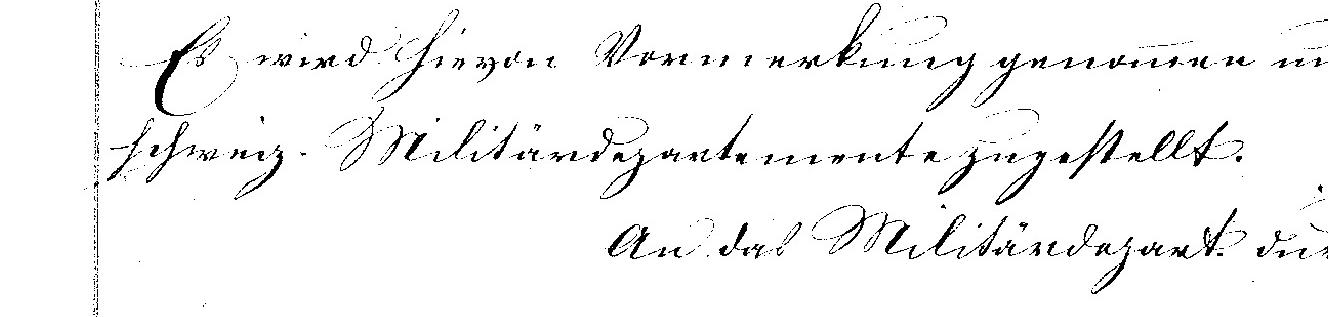 Es wird hievon Vormerkung genom̅en
schweiz. Militärdepartemente zugestellt.
An das Militärdepart.